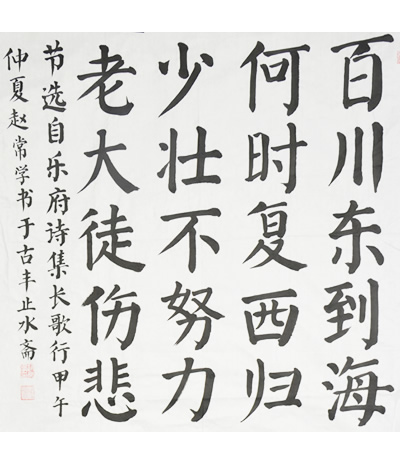 百川东到海
何时复西归
少壮不努力
老大徒伤悲
节选自乐府诗集长歌行甲午
仲夏赵常学书于古丰止水斋